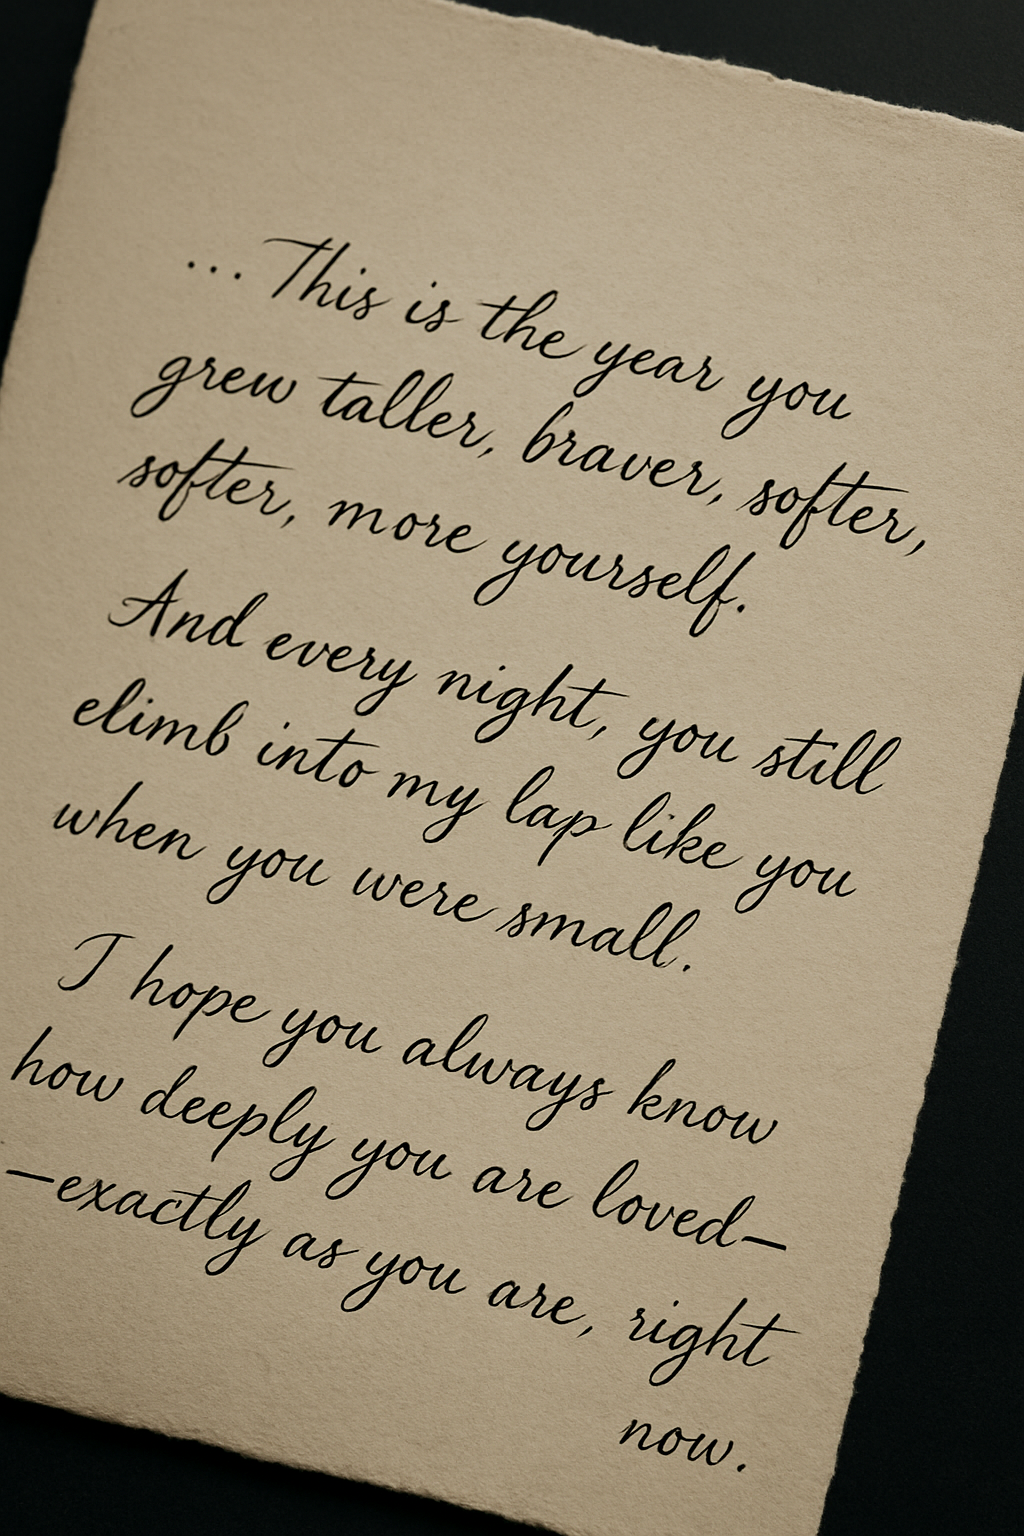 ... This is the year you
grew taller, braver, softer,
softer, more yourself.
And every night, you still
elimb into my lap like you
when you were small.
I hope you always know
how deeply you are loved—
—exactly as you are, right
now.